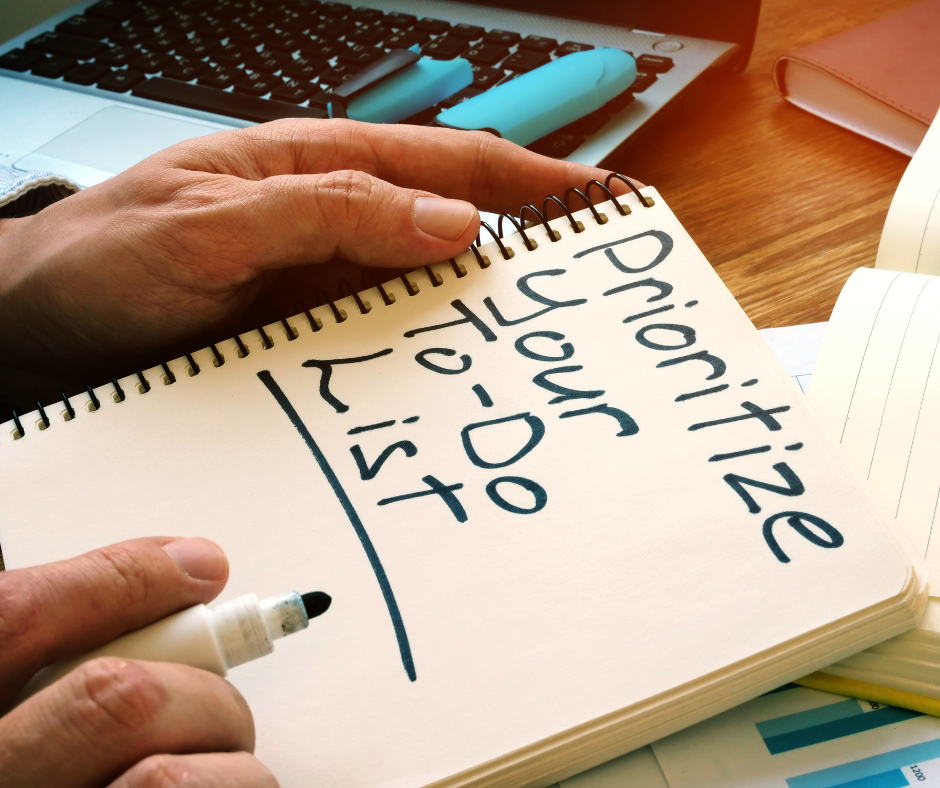 Prioritize
your
To-Do
List
1200